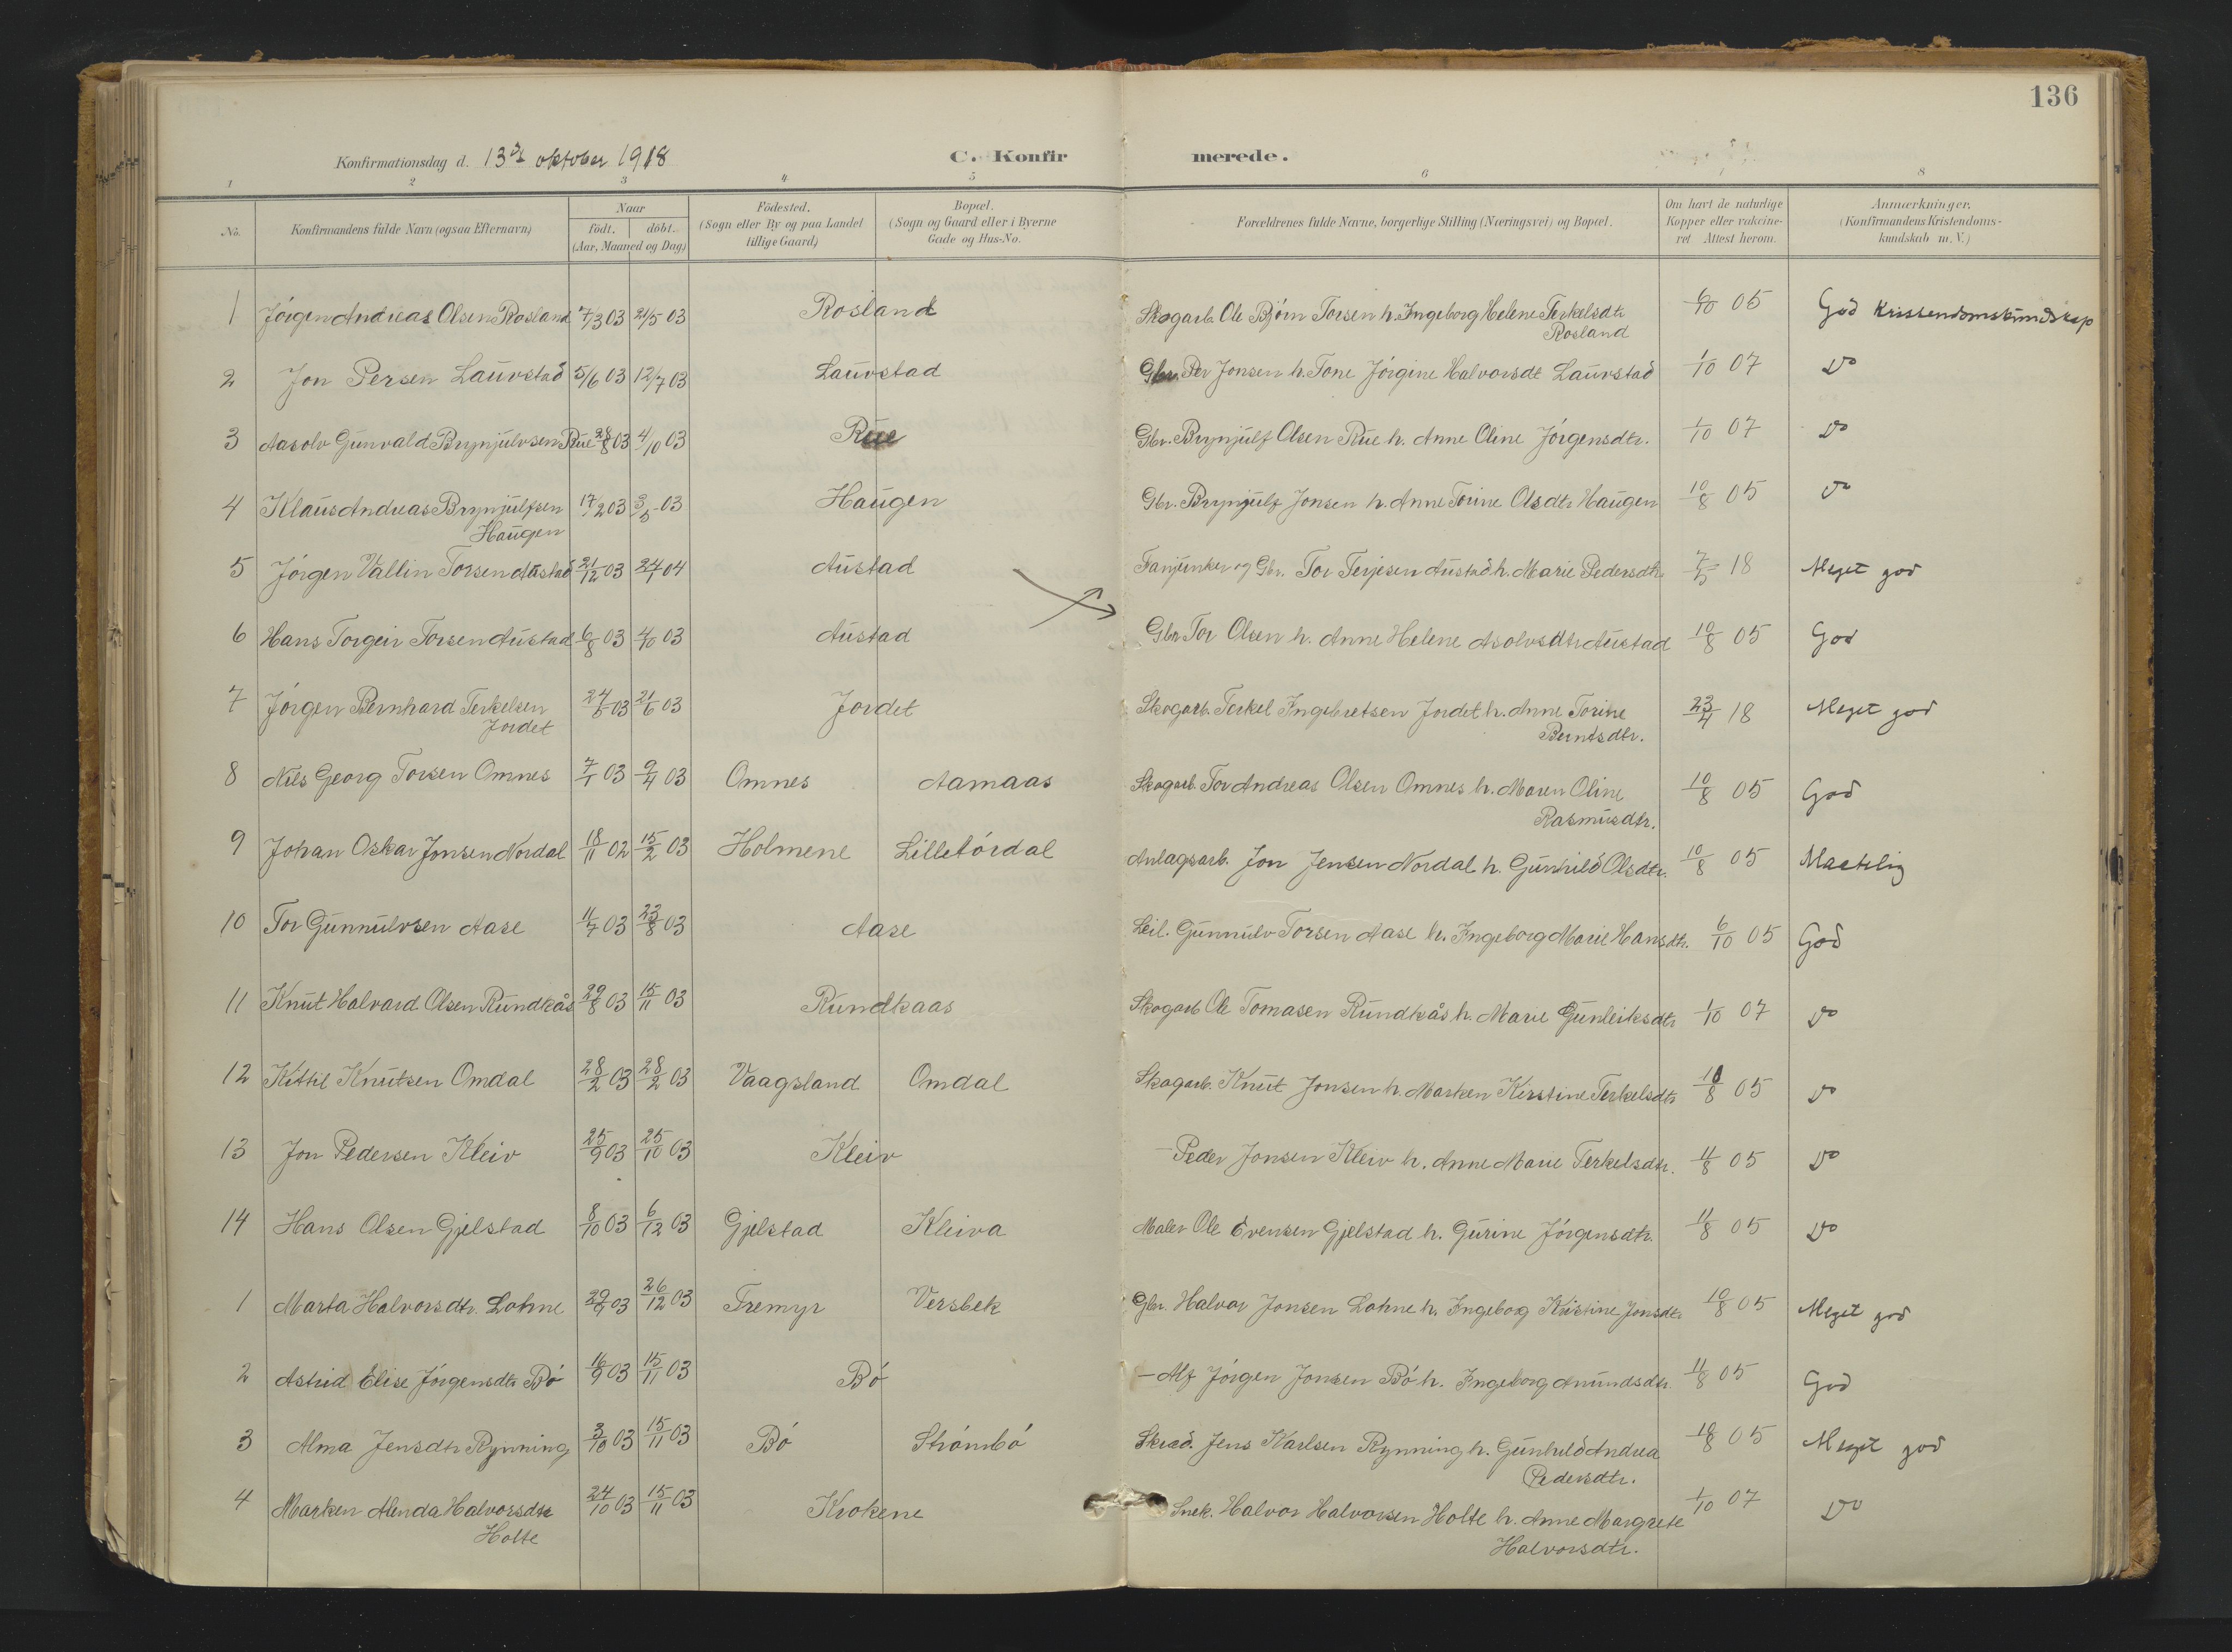 136
Konfirmationsdag d. 13de oktober 1918
C. Konfirmerede.
1 2 3 4 5 6 8
No. Konfirmandens fulde Navn (ogsaa Efternavn) Naar Födested. Bopæl. Forældrenes fulde Navne, borgerlige Stilling (Næringsvei) og Bopæl. Om havt de naturlige Anmærkninger.
födt. döbt. (Sogn eller By og paa Landet (Sogn og Gaard eller i Byerne Kopper eller vakcine- (Konfirmandens Kristendoms-
(Aar, Maaned og Dag) tillige Gaard) Gade og Hus-No. ret Attest herom. kundskab m. V.)
1 Jörgen Andreas Olsen Rosland 7/3 03 21/5 03 Rosland Skogarb. Ole Björn Torsen h. Ingeborg Helene Terkelsdtr 6/10 05 God Kristendomskundskap
Rosland
2 Jon Persen Laurstad 5/6 03 12/7 03 Laurstad Gbr. Per Jonsen h. Tone Jörgine Halvorsdt Laurstad 1/10 07 Do
3 Aasolv Gunvald Brynjulvsen Rue 28/8 03 4/10 03 Rue Gbr. Brynjulf Olsen Rue h. Anne Oline Jörgensdtr. 1/10 07 Do
4 Klaus Andreas Brynjulfsen 17/2 03 3/5 03 Haugen Gbr. Brynjulf Jonsen h. Anne Torine Olsdtr Haugen 10/8 05 Do
Haugen
5 Jörgen Vallin Torsen Austad 21/12 03 24/1 04 Austad Fanjunker og Gbr. Tor Terjesen Austad h. Marie Pedersdtr. 7/5 18 Meget god
6 Hans Torgeir Torsen Austad 6/8 03 4/10 03 Austad Gbr Tor Olsen h. Anne Helene Asolvsdtr Austad 10/8 05 God
7 Jörgen Bernhard Terkelsen 24/5 03 21/6 03 Jordet Skogarb. Terkel Ingebretsen Jordet h. Anne Torine 23/4 18 Meget god
Jordet Berntsdtr.
8 Nils Georg Torsen Omnes 7/1 03 9/4 03 Omnes Aamaas Skogarb. Tor Andreas Olsen Omnes h. Maren Oline 10/8 05 God
Rasmusdtr.
9 Johan Oskar Jonsen Nordal 18/11 02 15/2 03 Holmene Lilletördal Anlagsarb. Jon Jensen Nordal h. Gunhild Olsdtr. 10/8 05 Maatelig
10 Tor Gunnulvsen Aase 11/7 03 23/8 03 Aase Leil. Gunnulv Torsen Aase h. Ingeborg Marie Hansdtr. 6/10 05 God
11 Knut Halvard Olsen Rundkås 29/8 03 15/11 03 Rundkaas Skogarb Ole Tomasen Rundkås h. Marie Gunleiksdtr 1/10 07 Do
12 Kittil Knutsen Omdal 28/2 03 28/2 03 Vaagsland Omdal Skogarb. Knut Jonsen h. Marken Kirstine Terkelsdtr 10/8 05 Do
13 Jon Pedersen Kleiv 25/9 03 25/10 03 Kleiv – Peder Jonsen Kleiv h. Anne Marie Terkelsdtr. 11/8 05 Do
14 Hans Olsen Gjelstad 8/10 03 6/12 03 Gjelstad Kleiva Maler Ole Evensen Gjelstad h. Gurine Jörgensdtr. 11/8 05 Do
1 Marta Halvorsdtr. Lohne 29/9 03 26/12 03 Tremyr Versbek Gbr. Halvor Jonsen Lohne h. Ingeborg Kristine Jonsdtr 10/8 05 Meget god
2 Astrid Elise Jörgensdtr Bö 16/9 03 15/11 03 Bö – Alf Jörgen Jonsen Bö h. Ingeborg Anundsdtr. 11/8 05 God
3 Alma Jensdtr Rynning 3/10 03 15/11 03 Bö Strömbö Skræd. Jens Karlsen Rynning h. Gunhild Andrea 10/8 05 Meget god
Pedersdtr.
4 Marken Alenda Halvorsdtr 24/10 03 15/11 03 Krokene Snek. Halvor Halvorsen Holte h. Anne Margrete 1/10 07 Do
Holte Halvorsdtr.